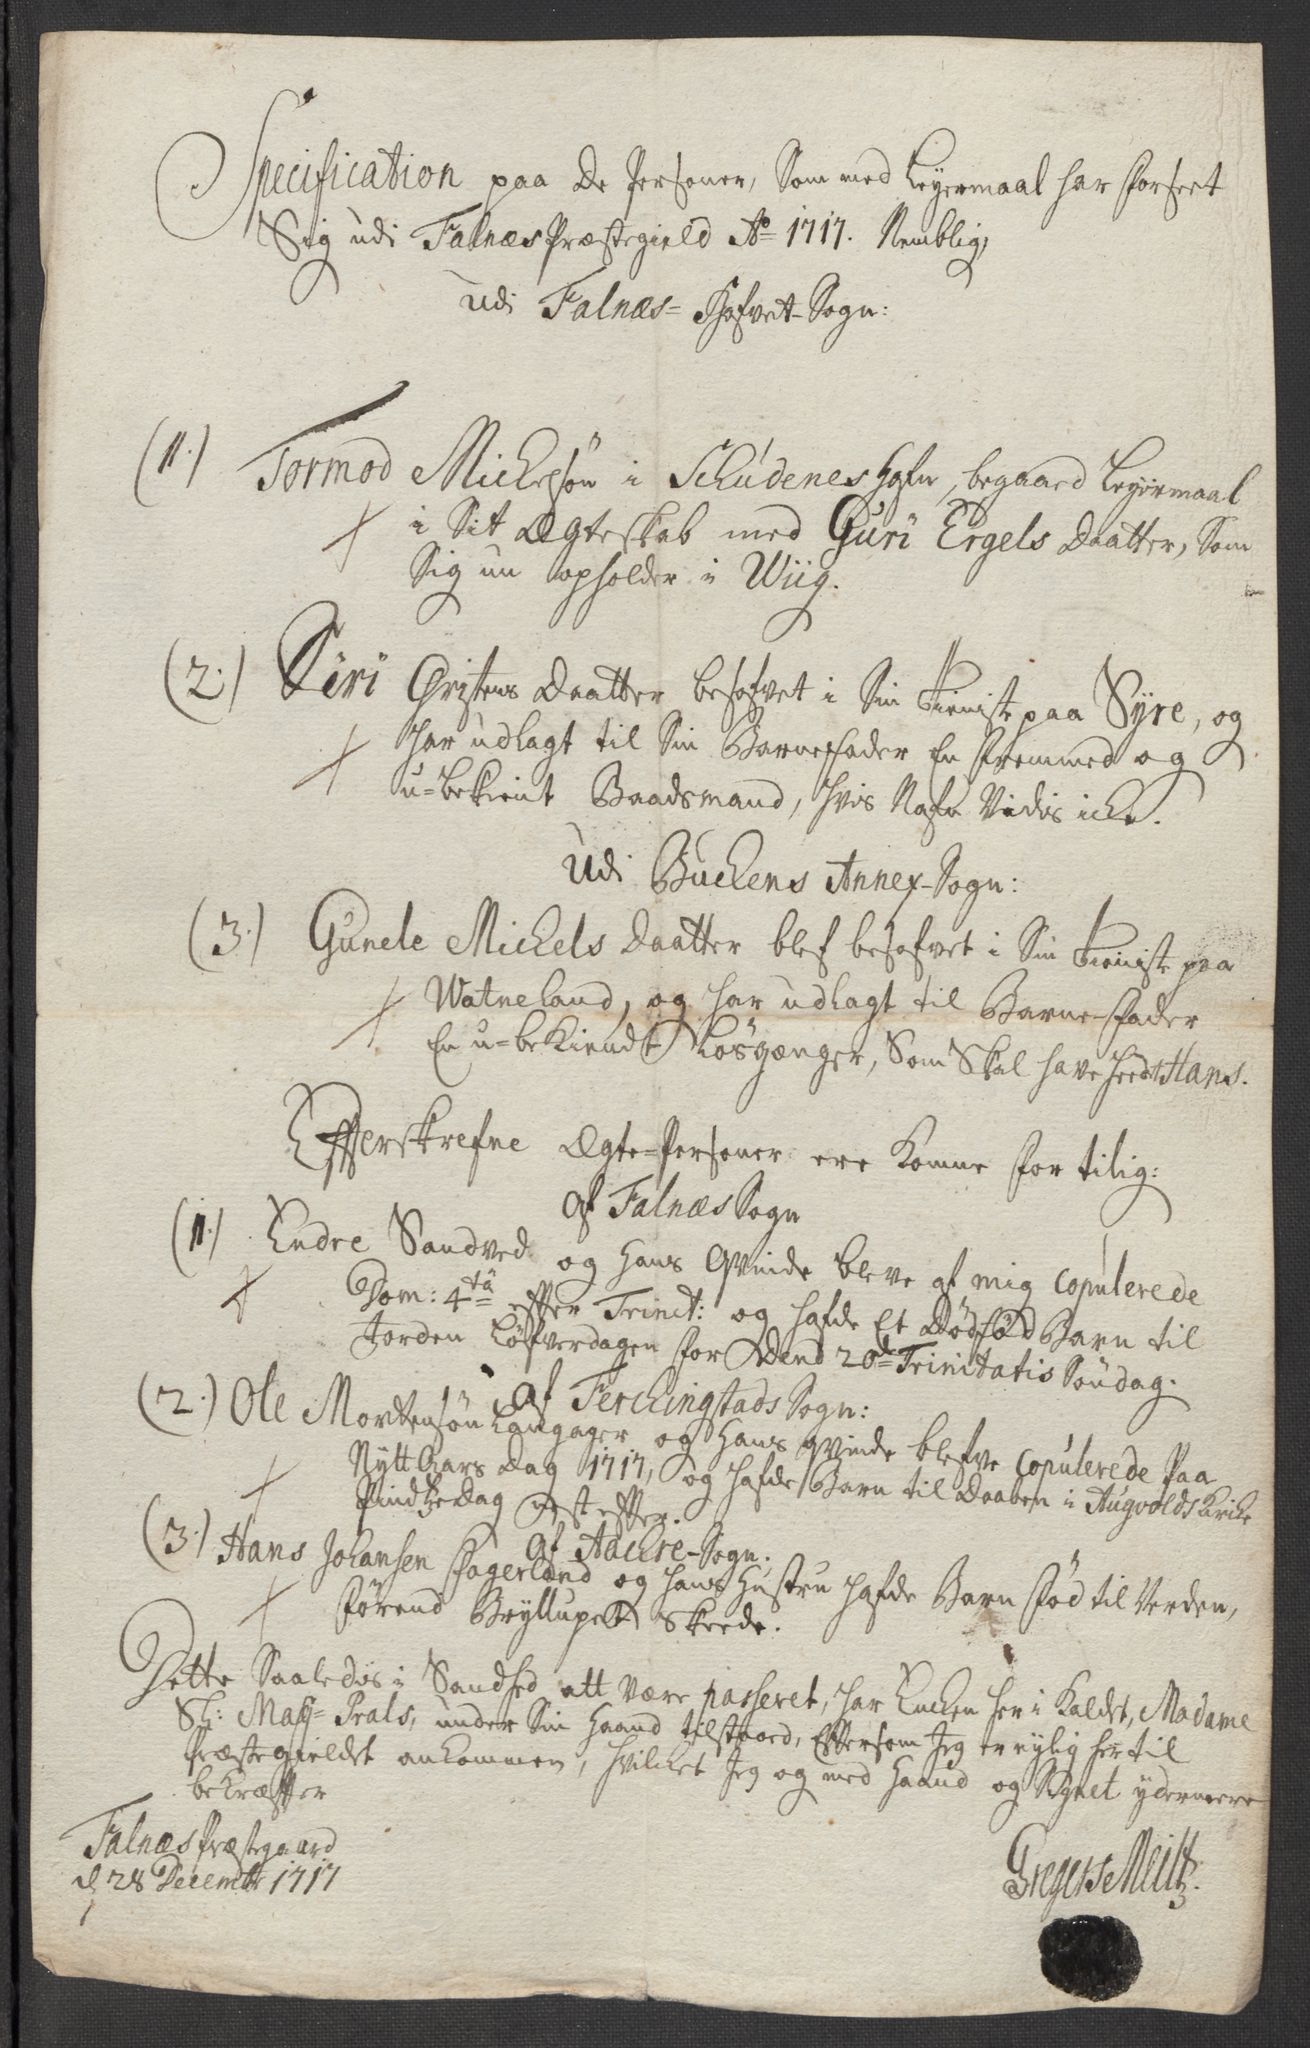 Specification paa de Personer, Som med Leyermaal har forseet
Sig udi Falnæs Præstegield Aº 1717. Nemblig,
udi Falnæs= Hofvet-Sogn:
(1.) Tormod Michelsøn i Schudenes Hafn, begaaed Leyermaal
i Sit Ægteskab med Guri Ergels Daatter, Som
Sig nu opholder i Wiig.
(2.) Siri Christens Daatter besofvet i Sin tieniste paa Syre, og
har udlagt til Sin Barnefader En fremmed og
u=bekient Baadsmand, hvis Nafn Vides icke.
Udi Buckens Annex-Sogn:
(3.) Gunele Michels Daatter blef besofvet i Sin tieniste paa
Watneland, og har udlagt til Barne-fader
En u=bekiendt Løsgænger, Som Skal have heedt Hans.
Efferskrefne Ægte=Personer ere komne for tilig:
Af Falnæs Sogn
(1.) Endre Sandved og Hans Qvinde bleve af mig copulerede
Dom: 4ta effter Trinit: og hafde Et Dødfød Barn til
Jorden Løfverdagen for dend 20de Trinitatis Søndag.
Af Ferchingstads Sogn:
(2.) Ole Mortensøn Langager og Hans qvinde blefve copulerede Paa
Nytt Aars Dag 1717, og hafde Barn til Daaben i Augvolds Kircke
Pindtze Dag nest effter.
Af Aachre-Sogn.
(3.) Hans Johansen Fagerland og hans Hustru hafde Barn fød til Verden,
førend Bryllupet Skeede.
Dette Saaledes i Sandhed att være passeret, har Encken her i Kaldet, Madame
Sl: Mag= Prals, under Sin Haand tilstaaed, Effersom Jeg er nylig her til
Præstegieldet ankommen, hvilcket Jeg og med Haand og Signet ydermeere
bekræffter
Falnæs Præstegaard
d. 28 Decembr 1717
Gregers Meltz.